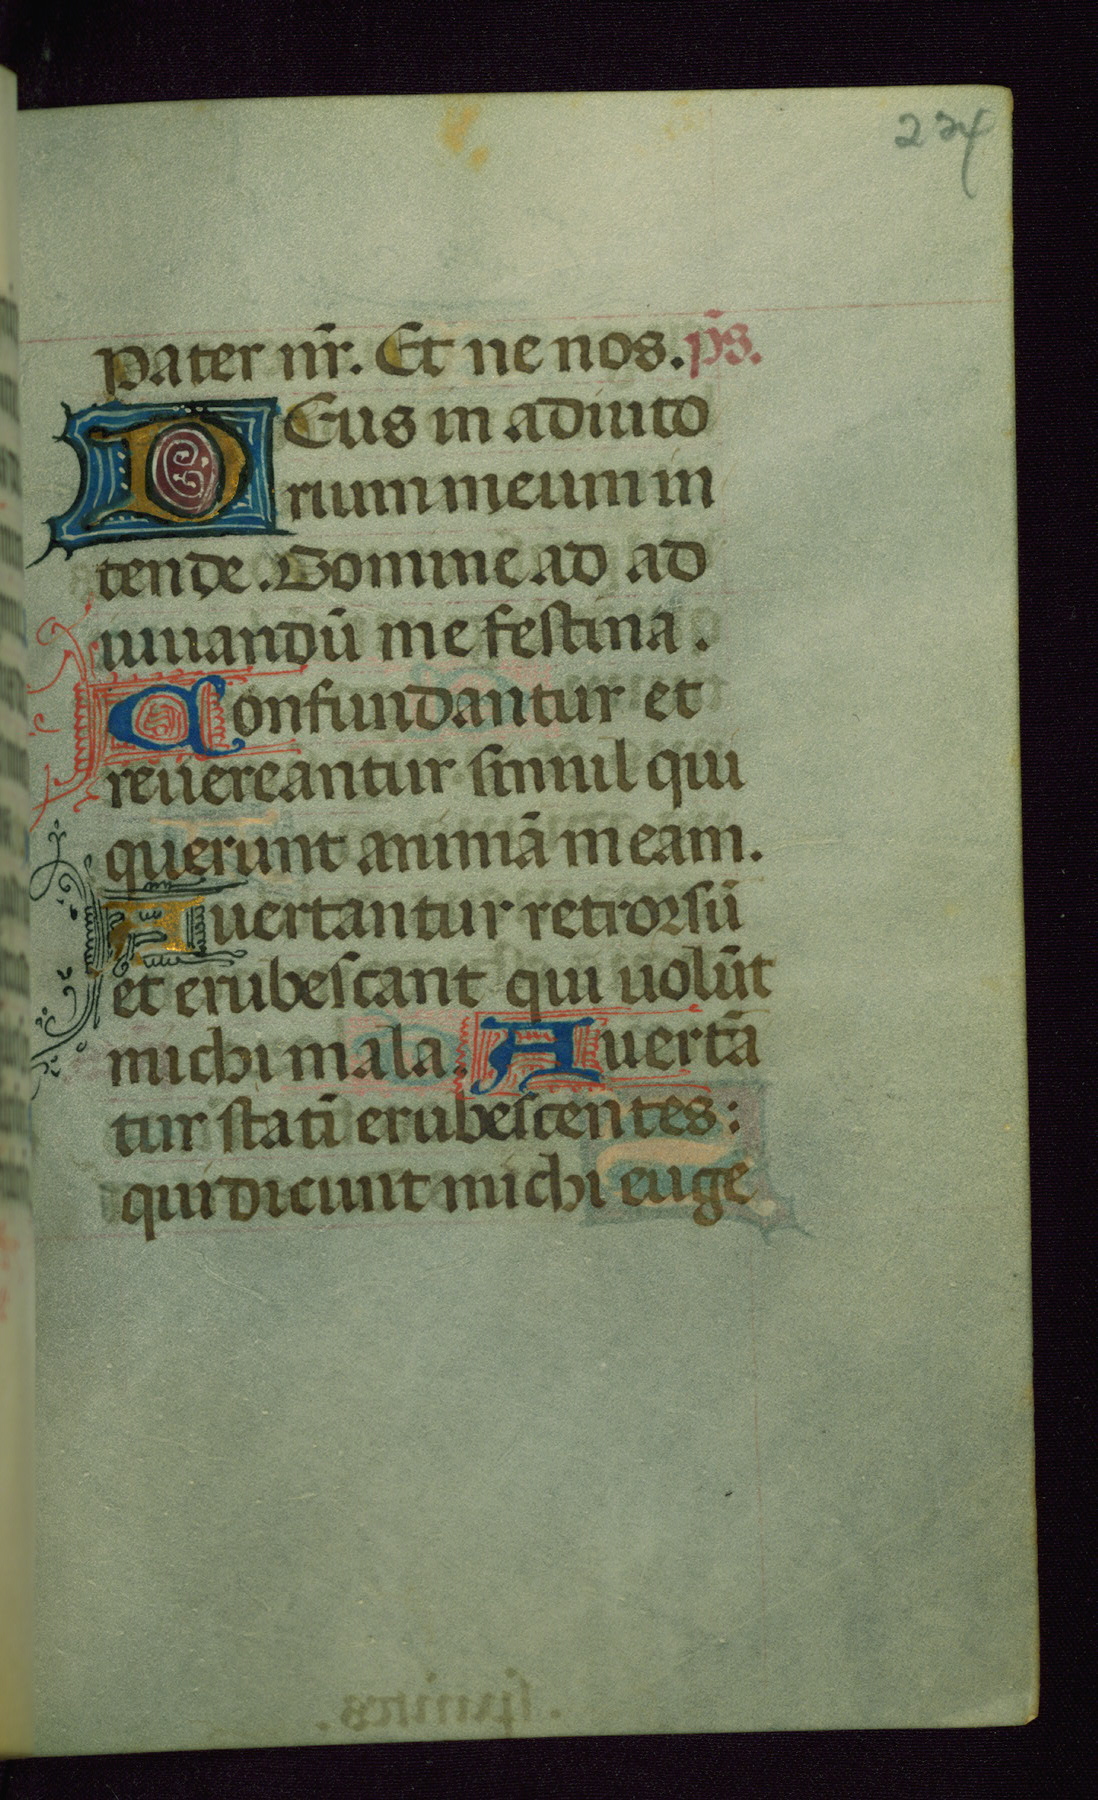 224
Pater nr̄. Et ne nos. p̄s.
DEus in adiuto
rium meum in
tende. Domine ad ad
iuuandū me festina.
Confundantur et
reuereantur simul qui
querunt animā meam.
Auertantur retrorsū
et erubescant qui uolūt
michi mala. Auertā
tur statī erubescentes:
qui dicunt michi euge